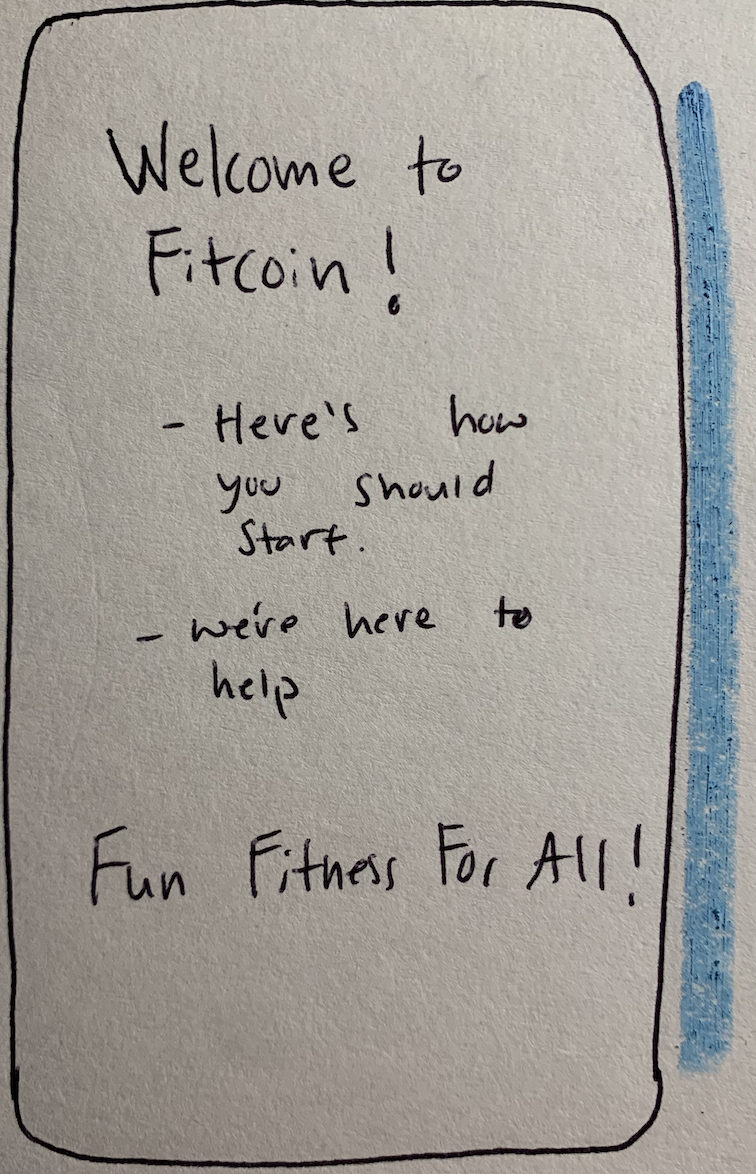 Welcome to
Fitcoin!
- Here's how
you should
start.
- we're here to
help
Fun Fitness For All!